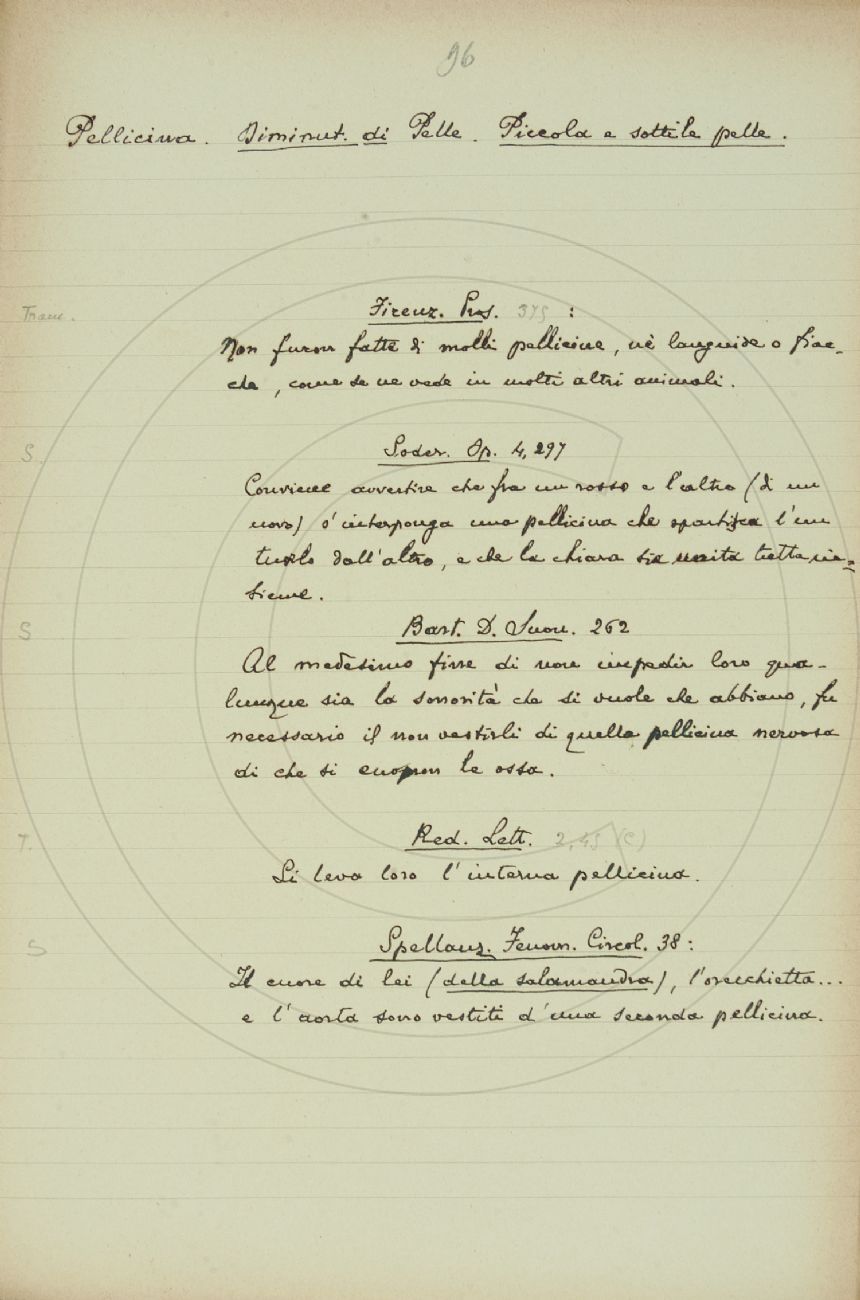 96
Pellicina. Diminut. di Pelle. Piccola e sottile pelle.
Firenz. Pros. 375 :
Non furon fatte di molli pellicine, nè languide o fiac-
che, come se ne vede in molti altri animali.
S.
Soder. Op. 4, 297
Conviene avvertire che fra un rosso e l'altro (di un
uovo) s'interponga una pellicina che spartisca l'un
tuorlo dall'altro, e che la chiara sia unita tutta in=
sieme.
S
Bart. D. Suon. 262
Al medesimo fine di non impedir loro qua-
lunque sia la sonorità che si vuole che abbiano, fu
necessario il non vestirli di quella pellicina nervosa
di che si cuopron le ossa.
T.
Red. Lett. 2,45 (C)
Si leva loro l'interna pellicina.
S
Spallanz. Fenom. Circol. 38:
Il cuore di lei (della salamandra), l'orecchietta...
e l'aorta sono vestiti d'una seconda pellicina.